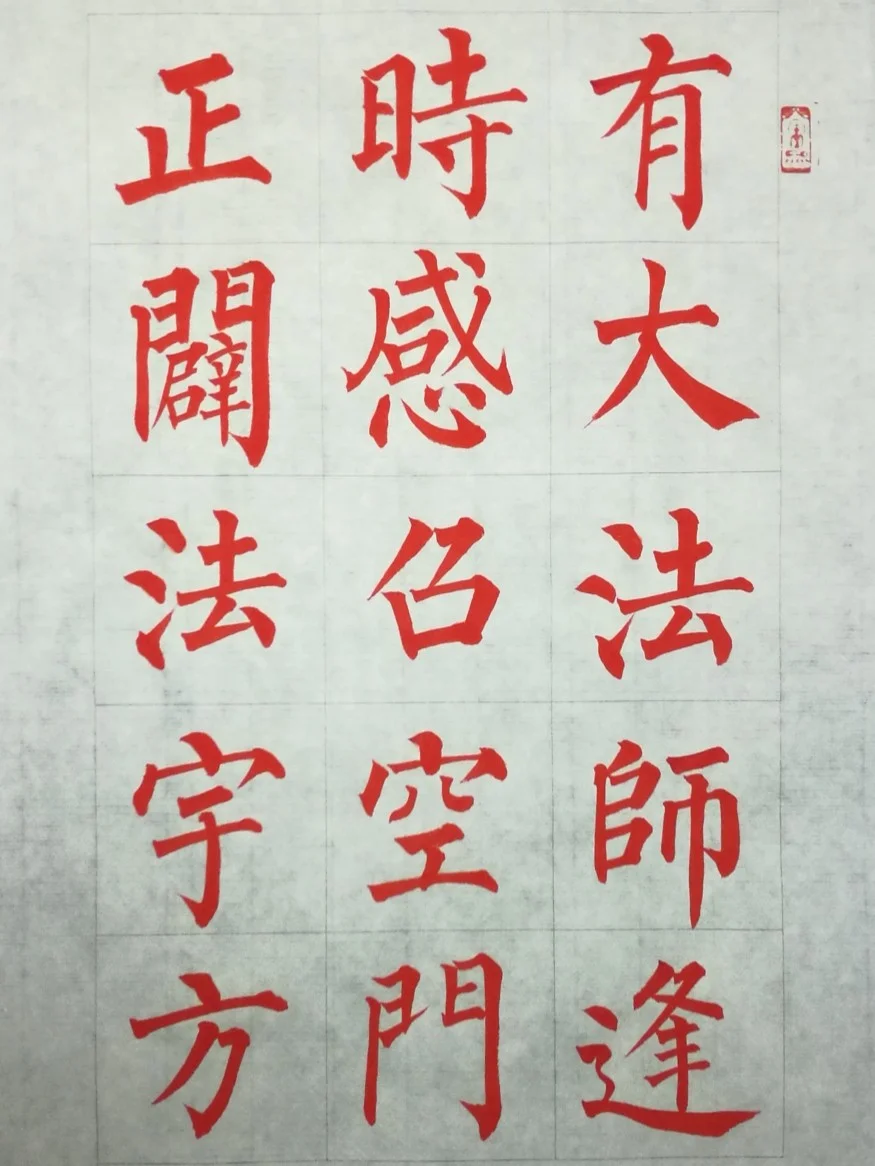 有大法師逢
時感召空門
正闢法宇方